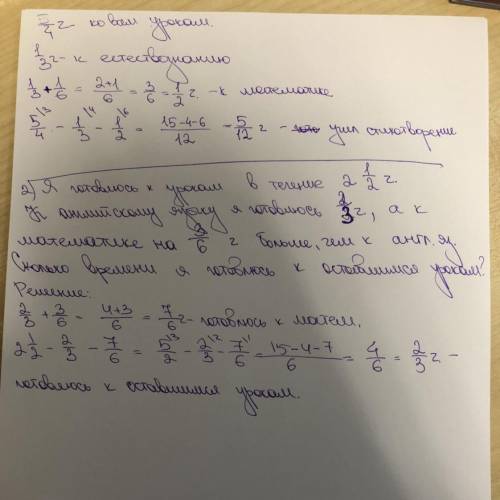 5/4 г ко всем урокам.
1/3 г - к естествознанию
1/3 + 1/6 = 2+1/6 = 3/6 = 1/2 г. - к математике
5/4 \3 - 1/3 \4 - 1/2 \6 = 15-4-6/12 - 5/12 г - учил стихотворение
2) Я готовлюсь к урокам в течение 2 1/2 г.
К английскому языку я готовлюсь 2/3 г, а к
математике на 3/6 г больше, чем к англ. яз.
Сколько времени я готовлюсь к оставшимся урокам?
Решение:
2/3 + 3/6 = 4+3/6 = 7/6 г - готовлюсь к матем.
2 1/2 - 2/3 - 7/6 = 5/2 \3 - 2/3 \2 - 7/6 \1 = 15-4-7/6 = 4/6 = 2/3 г -
готовлюсь к оставшимся урокам.